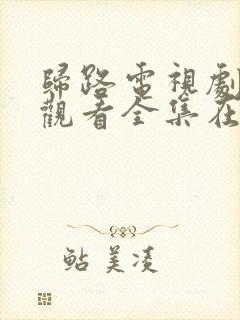 歸路電視劇
觀看全集在
鮎美凌